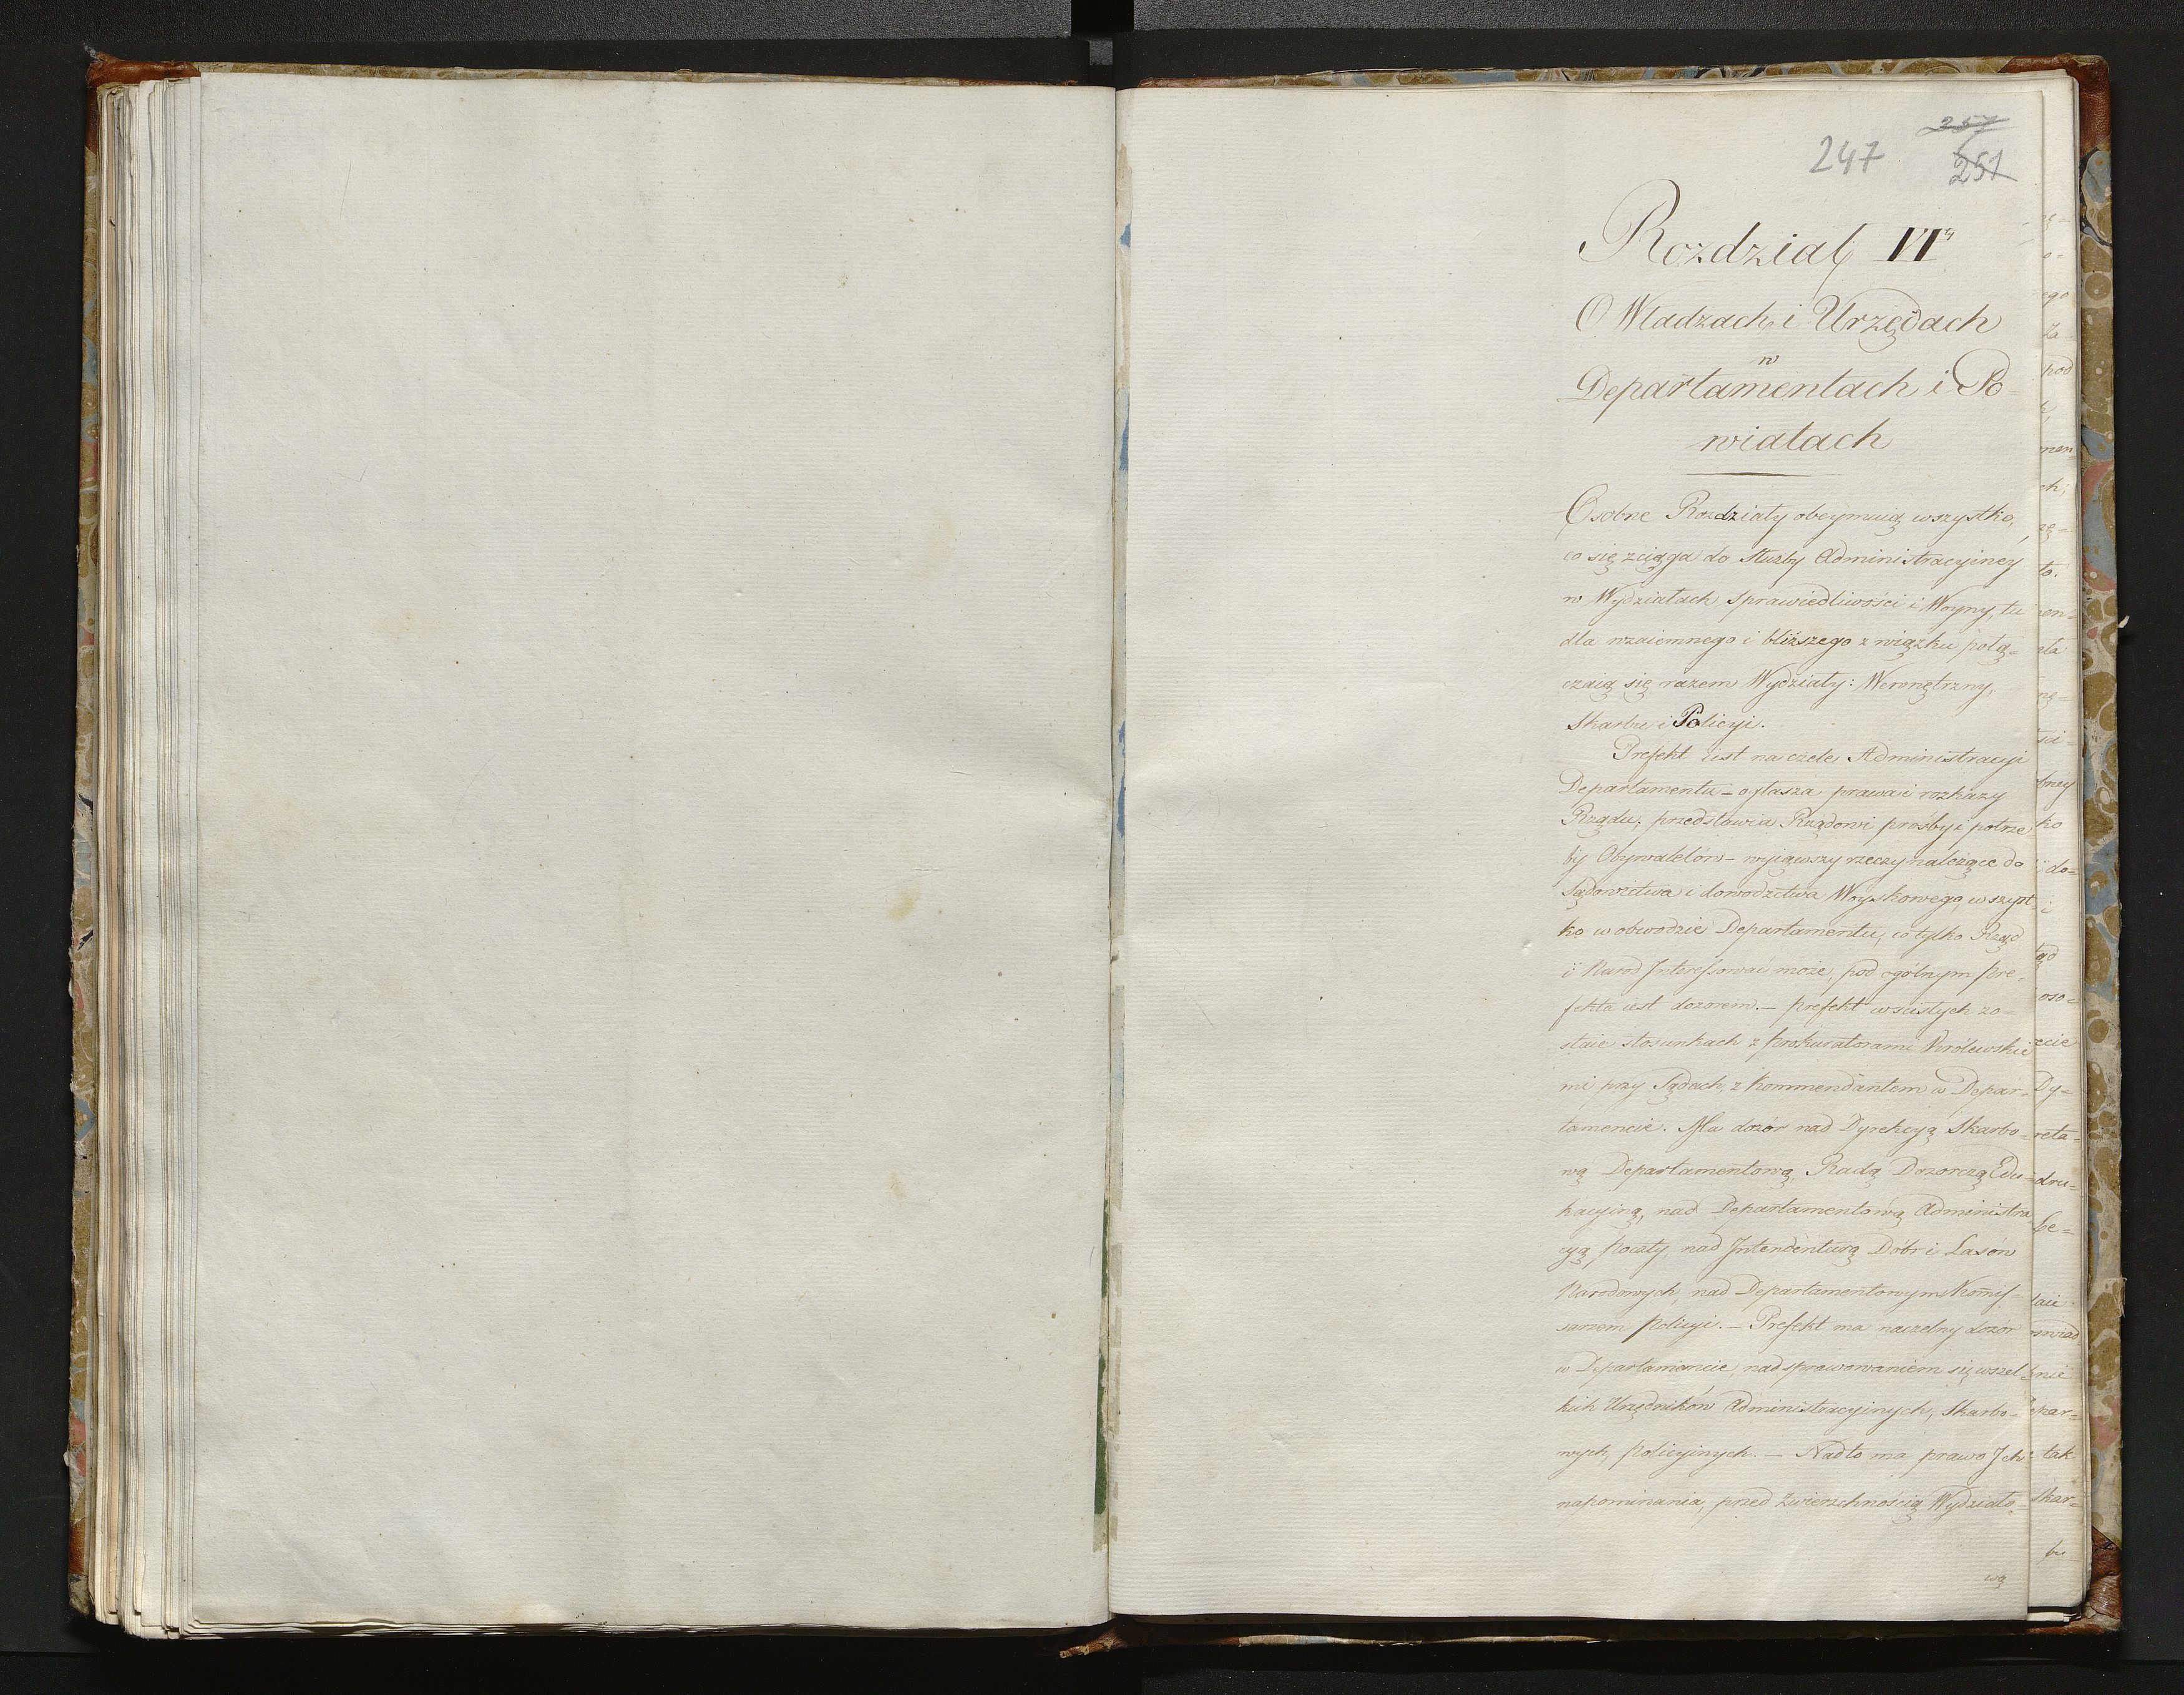 257
247 251
Rozdział VI
O Władzach i Urzędach
w
Departamentach i Po-
wiatach
Osobne Rozdziały obeymuią wszystko,
co się zciąga do służby Administracyiney
w Wydziałach Sprawiedliwości i Woyny, tu
dla wzaiemnego i bliższego związku połą=
czaią się razem Wydziały: Wewnętrzny,
Skarbu i Policyi.
Prefekt iest na czele Administracyi
Departamentu – ogłasza prawa i rozkazy
Rządu, przedstawia Rządowi prośby i potrze
by Obywatelów – wyiąwszy rzeczy należące do
Sądownictwa i dowództwa Woyskowego, wszyst-
ko w obwodzie Departamentu, co tylko Rząd
i Narod Interessować może, pod ogólnym Pre-
fekta iest dozorem. – Prefekt w ścisłych zo-
staie stosunkach z Prokuratorami Królewskie
mi przy Sądach, z Kommendantem w Depar-
tamencie. Ma dozór nad Dyrekcyą Skarbo-
wą Departamentową, Radą Dozorczą Edu-
kacyiną, nad Departamentową Administra
cyą poczty, nad Intendenturą Dóbr i Lasów
Narodowych, nad Departamentowym Komis-
sarzem Policyi. – Prefekt ma naczelny dozór
w Departamencie, nad sprawowaniem się wszel-
kich Urzędników Administracyinych, Skarbo-
wych, Policyinych. – Nadto ma prawo Ich
napominania, przed Zwierzchnością Wydziało
wą